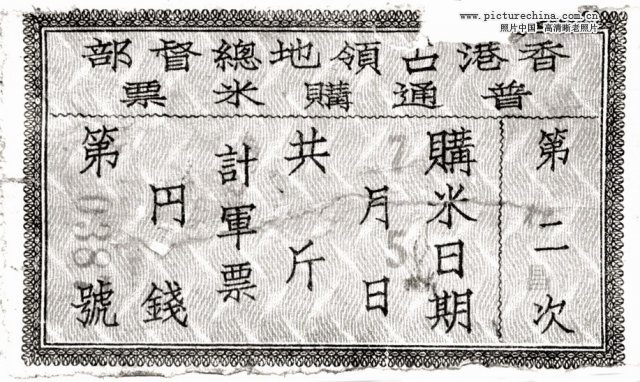 www.picturechina.com.cn
照片中国 高清晰老照片
香港占領地總督部
普通購米票
第二次
購米日期
7月5日
共 斤
計軍票
円 錢
第 038 號